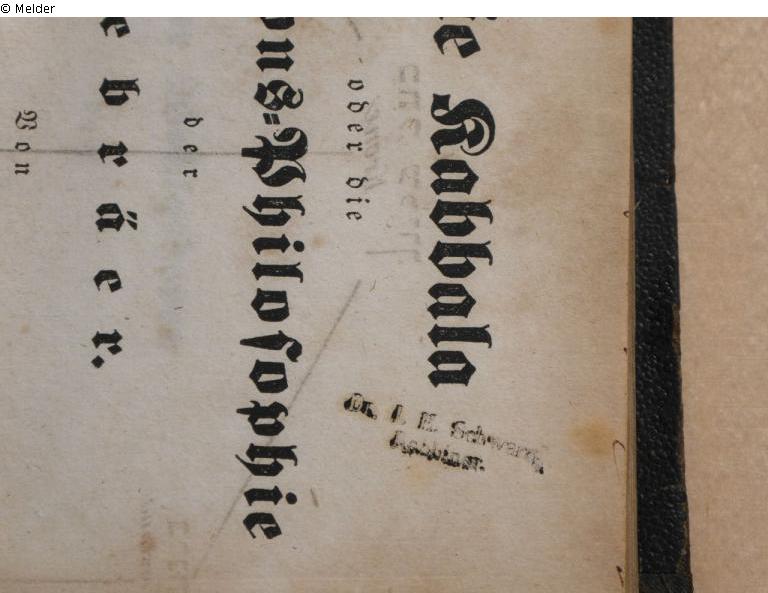 © Melder
ie Kabbala
oder die
ons=Philosophie
der
ebräer.
Von
Dr. I. M. Schwarz,